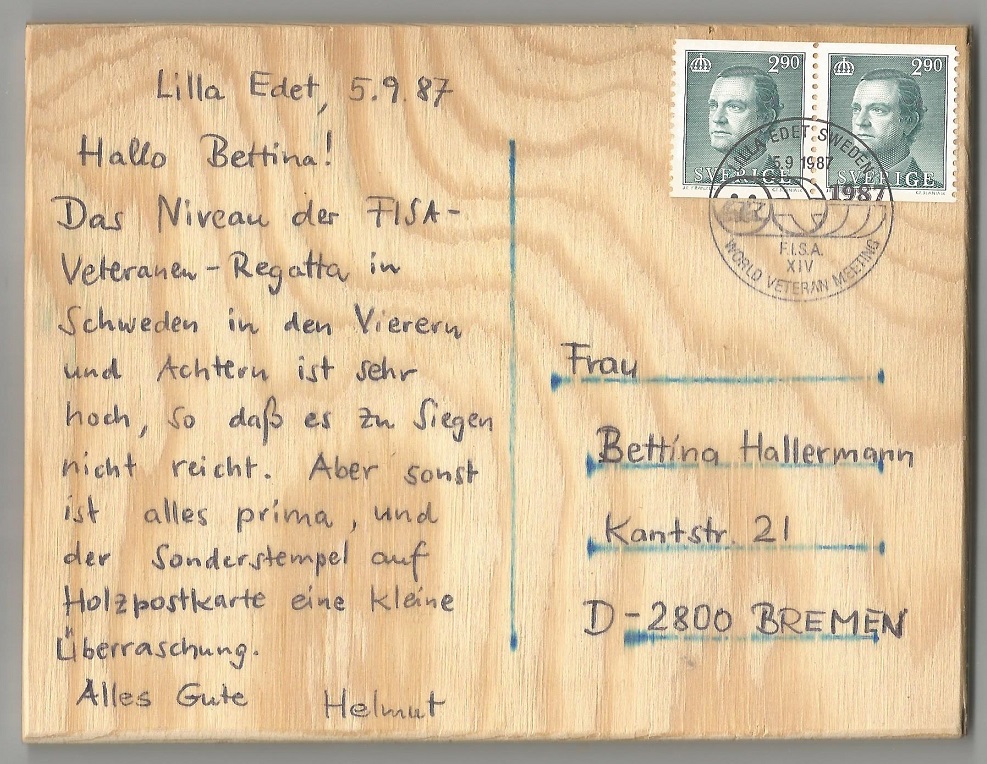 Lilla Edet, 5.9.87
Hallo Bettina!
Das Niveau der FISA-
Veteranen-Regatta in
Schweden in den Vierern
und Achtern ist sehr
hoch, so daß es zu Siegen
nicht reicht. Aber sonst
ist alles prima, und
der Sonderstempel auf
Holzpostkarte eine kleine
Überraschung.
Alles Gute Helmut
290 290
SVERIGE SVERIGE
LILLA EDET SWEDEN
5.9 1987
1987
F.I.S.A.
XIV
WORLD VETERAN MEETING
Frau
Bettina Hallermann
Kantstr. 21
D-2800 BREMEN